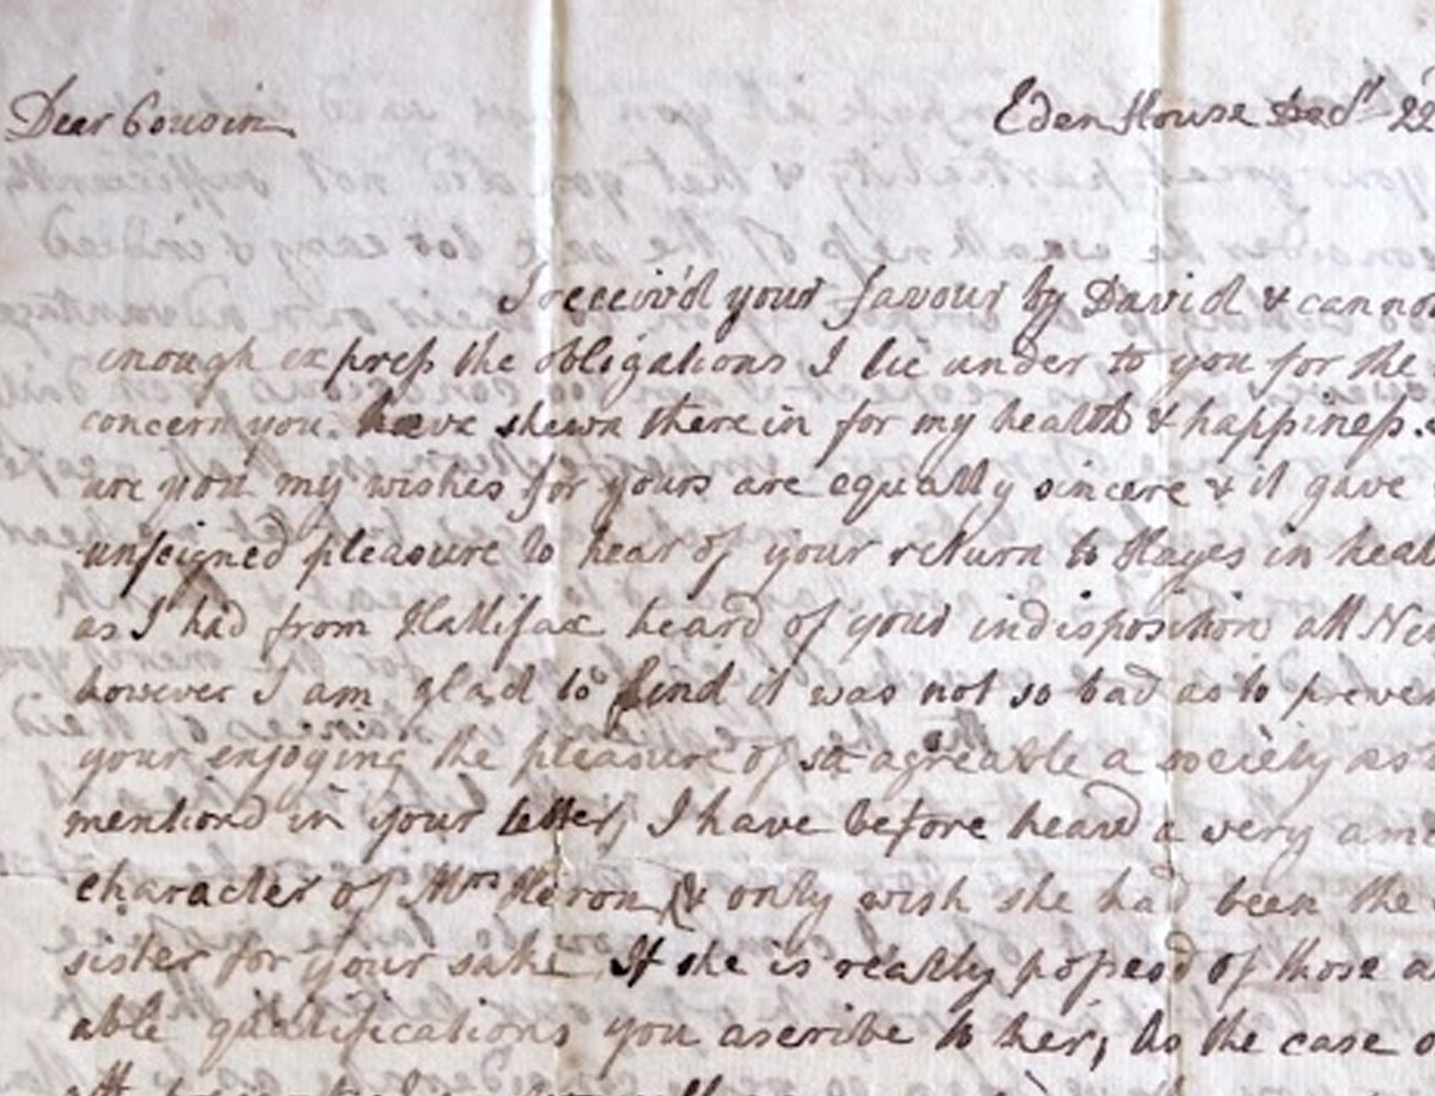 Dear Cousin
Eden House Decr 22
I receiv'd your favour by David & cannot
enough express the obligations I lie under to you for the
concern you have shewn therein for my health & happiness.
are you my wishes for yours are equally sincere & it gave
unfeigned pleasure to hear of your return to Hayes in heal
as I had from Hallifax heard of your indisposition all New
however I am glad to find it was not so bad as to preven
your enjoying the pleasure of so agreable a society as
mentiond in your letter, I have before heard a very ame
character of Mrs Heron & only wish she had been the
sister for your sake If she is really possessd of those a
able qualifications you ascribe to her, As the case o